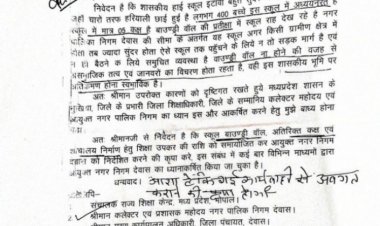 निवेदन है कि शासकीय हाई स्कूल इटावा बहुत सुंदर
चारो तरफ हरियाली छाई हुई है लगभग 400 बच्चे इस स्कूल में अध्ययनरत है
में मात्र 05 कक्ष है बाउण्ड्री वॉल की प्रतीक्षा में स्कूल राह देख रहे है नगर
निगम देवास की सीमा के अंतर्गत वह स्कूल अगर किसी ग्रामीण क्षेत्र में
होता तब ज्यादा सुंदर होता ऐसे स्कूल तक पहुंचने के लिये न तो सड़क मार्ग है एवं
बैठने के लिये समुचित व्यवस्था है बाउण्ड्री वॉल ना होने की वजह से
असामाजिक तत्व एवं जानवरों का विचरण होता रहता है, वही इस शासकीय भूमि पर
अतिक्रमण होना स्वभाविक है।
अतः श्रीमान उपरोक्त कारणो को दृष्टिगत रखते हुये मध्यप्रदेश शासन के
जिले के प्रभारी जिला शिक्षाधिकारी, जिले के सम्मानिय कलेक्टर महोदय एवं
आयुक्त नगर पालिक निगम का ध्यान इस और आकर्षित करने हेतु मुझे बाध्य होना
अतः श्रीमानजी से निवेदन है कि स्कूल बाउण्ड्री वॉल, अतिरिक्त कक्ष एवं
निर्माण हेतु शिक्षा उपकर की राशि को समायोजित कर आयुक्त नगर निगम
को निर्देशित करने की कृपा करे, इस संबंध में कई बार विभिन्न माध्यमों द्वारा
का ध्यानाकर्षित किया जा चुका है।
धन्यवाद। आशा है कि गई कार्यवाही से अवगत
कराने की कृपा होगी
संचालक राज्य शिक्षा केन्द्र, मध्य प्रदेश, भोपाल।
श्रीमान कलेक्टर एवं प्रशासक महोदय नगर पालिक निगम देवास।
कार्यपालन अधिकारी, जिला पंचायत, देवास।